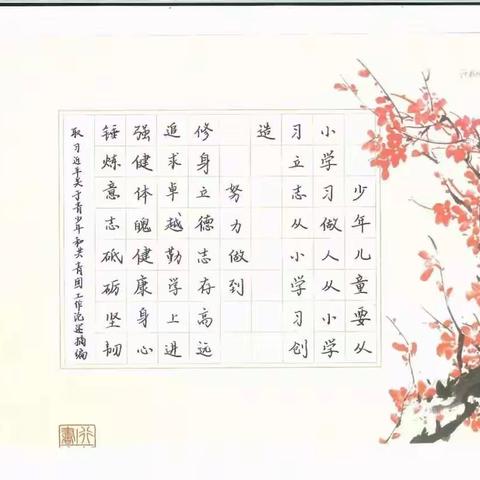 少年儿童要从
小学习做人从小学
习立志从小学习创
造
努力做到
修身立德志存高远
追求卓越勤学上进
强健体魄健康身心
锤炼意志砥砺坚韧
取习近平关于青少年和共青团工作论述摘编